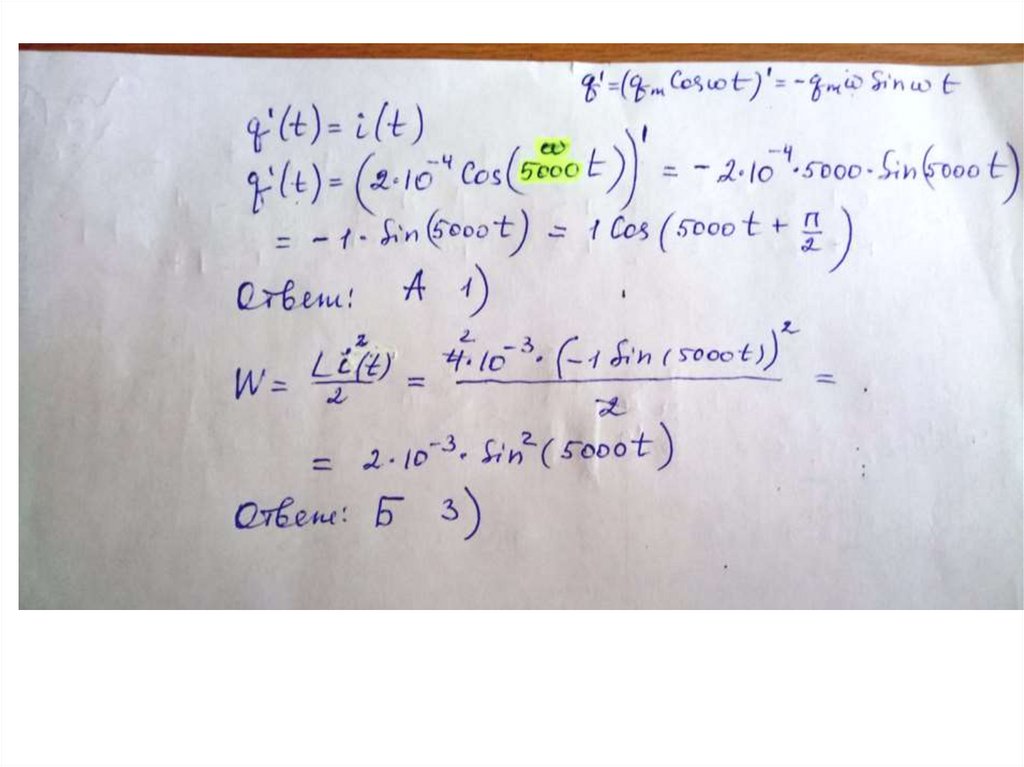 q' = (qm Cos ωt)' = - qm ω Sin ω t
q'(t) = i(t)
q'(t) = (2·10⁻⁴ Cos(5000 t))' = - 2·10⁻⁴·5000· Sin(5000 t)
ω
= - 1 · Sin(5000t) = 1 Cos (5000t + П/2)
Ответ: А 1)
W = Li²(t)/2 = 4·10⁻³·(-1 Sin(5000t))²/2 =
2
= 2·10⁻³· Sin²(5000t)
Ответ: Б 3)